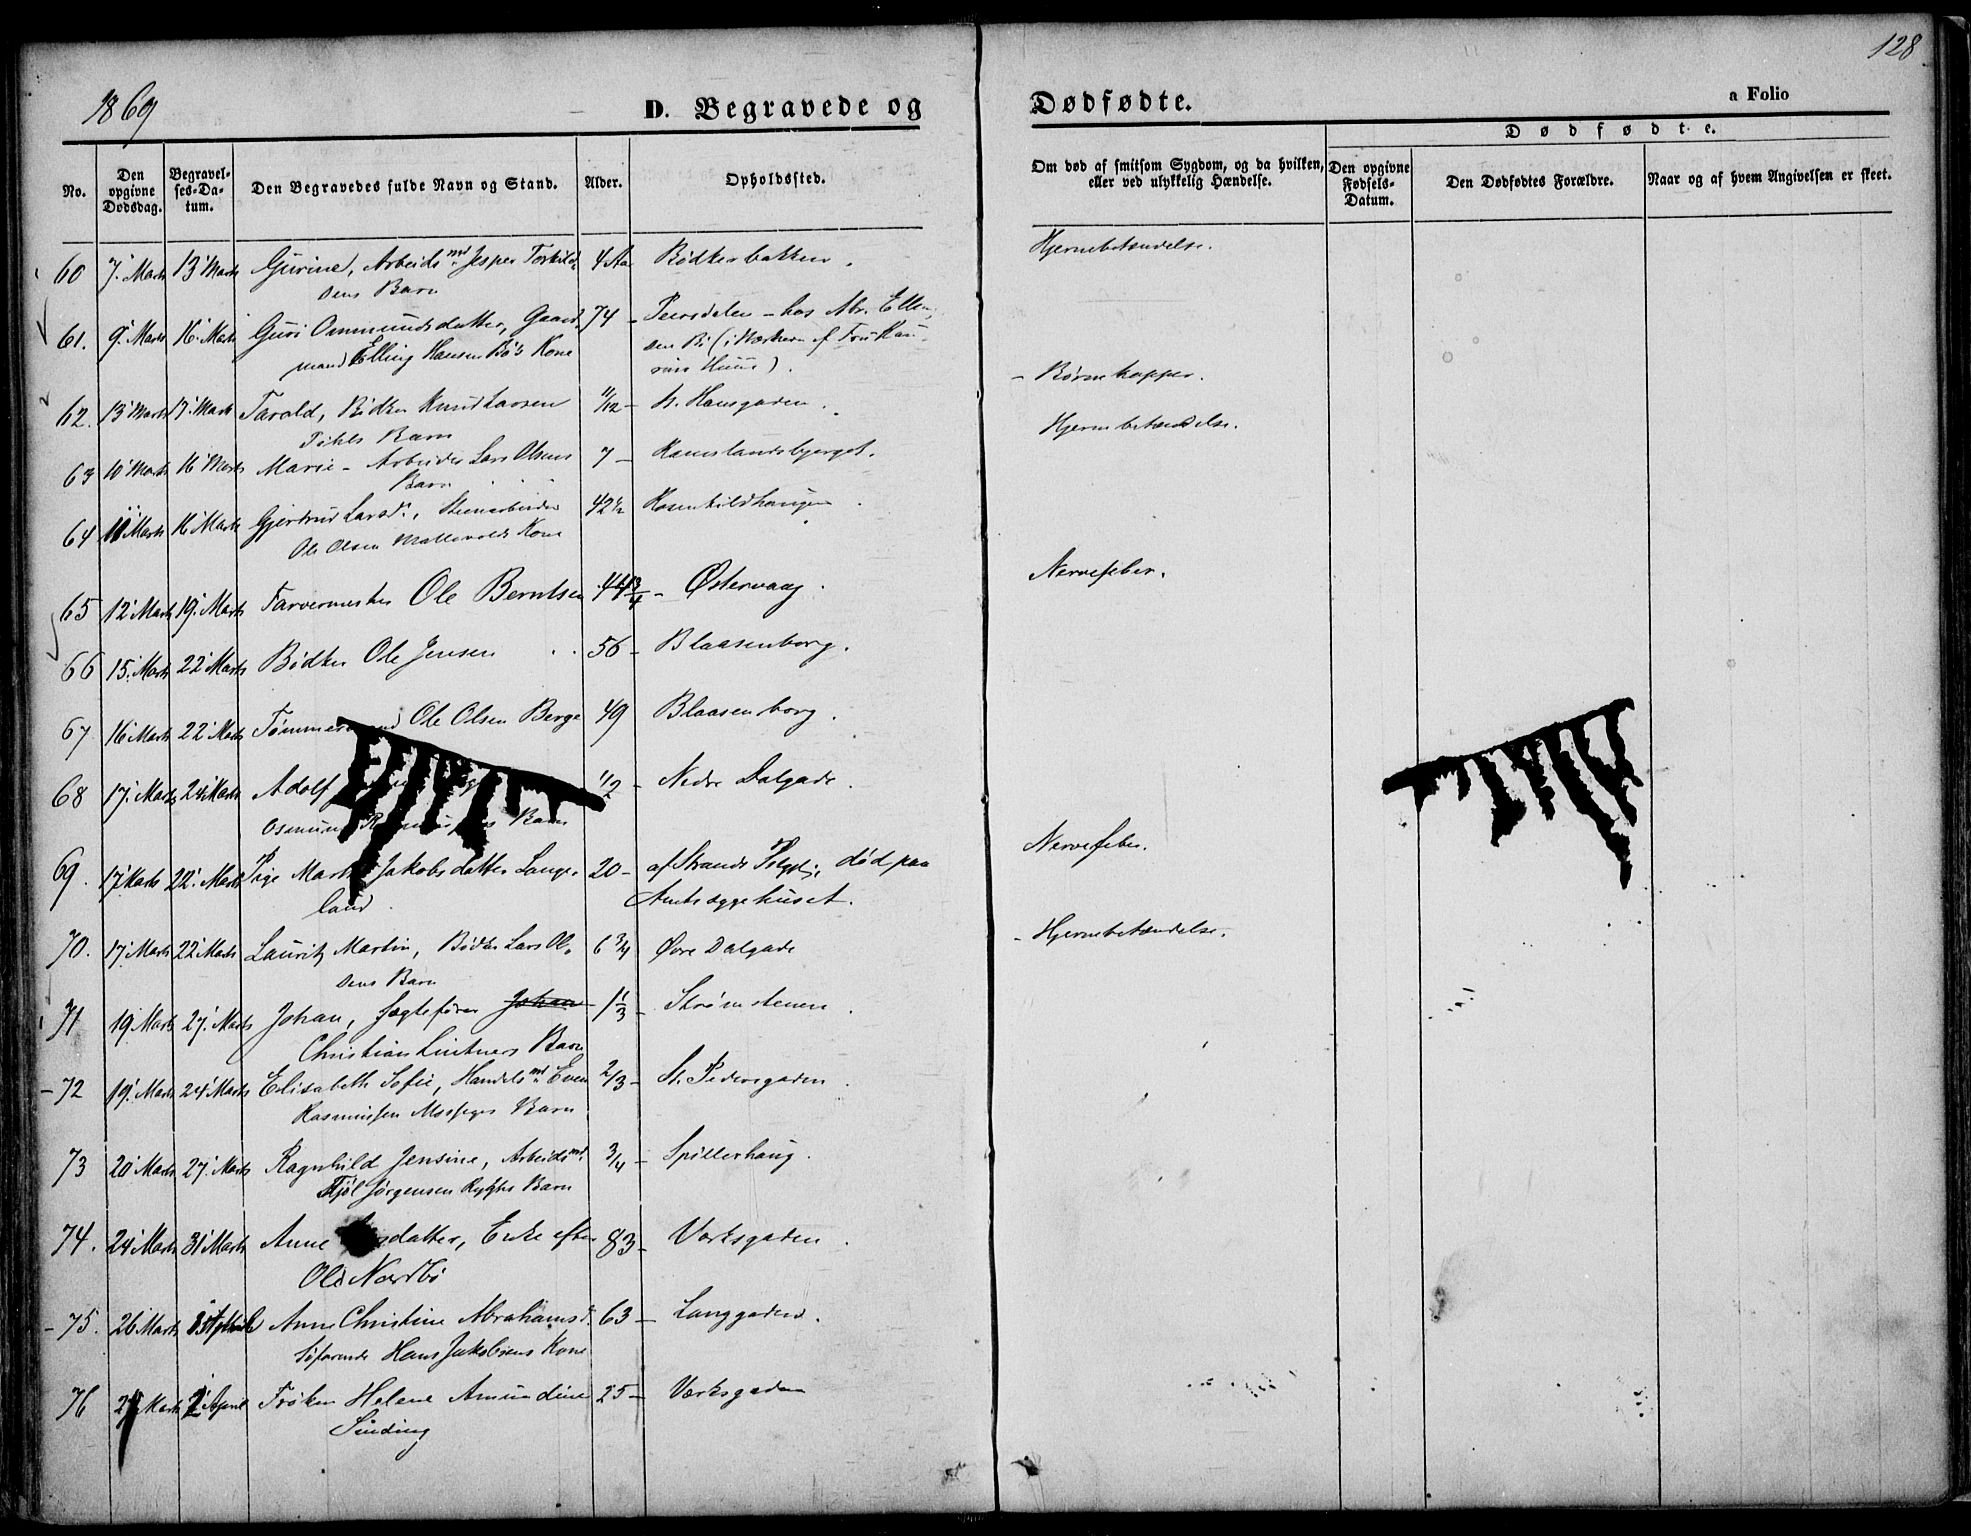 128
1869
D. Begravede og Dødfødte.
a Folio
No.
Den opgivne Dødsdag.
Begravelses-Datum.
Den Begravedes fulde Navn og Stand.
Alder.
Opholdssted.
Om død af smitsom Sygdom, og da hvilken, eller ved ulykkelig Hændelse.
Dødfødte.
Den opgivne Fødsels-Datum.
Den Dødfødtes Forældre.
Naar og af hvem Angivelsen er skeet.
60 7' Marts 13' Marts Gurine, Arbeidsmd. Jesper Torkild- 4 Aar Bødkerbakken. Hjernebetændelse.
sens Barn
61. 9' Marts 16' Marts Guri Ommundsdatter, Gaard- 74 - Peersdalen - hos Abr. Ellin-
mand Elling Hansen Bø's Kone sen Bø (i Nærheden af Fru
Huus).
62. 13' Marts 17' Marts Tarald, Bødker Knud Larsen 11/12 - St. Hansgaden. - Børnekopper.
Barn
63 10' Marts 16' Marts Marie - Arbeider Lars Olsens 7 - Ramslandsbjerget. Hjernebetændelse.
Barn
64 11' Marts 16' Marts Gjertrud Larsdr., Steenarbeider 42 1/2 Rosenkildhaugen.
Ole Olsen Kone
65 12' Marts 19' Marts Farvermester Ole Berntsen 44 3/4 - Østervaag. Nervefeber.
66 15' Marts 22' Marts Bødker Ole Jensen 56 - Blaasenborg.
67 16' Marts 22' Marts Ole Olsen Berge 49 Blaasenborg.
68 17' Marts 24' Marts Adolf 1/2 - Nedre Dalgade.
Barn
69. 17' Marts 22' Marts Pige Jakobsdatter Lange- 20 - af Strands død paa Nervefeber.
land Amtssygehuset.
70. 17' Marts 22' Marts Lauritz Martin, Bødker Lars Ol- 6 3/4 Øvre Dalgade - Hjernebetændelse.
sens Barn
71 19' Marts 27' Marts Johan, Jægtefører Johan 1 1/3 - Strømstenen.
Christian Lintners Barn
- 72 19' Marts 24' Marts Elisabeth Sofie, Handelsmd. Even 2/3 - St. Pedersgaden.
Rasmussen Barn
73 20' Marts 27' Marts Ragnhild Jensine, Arbeidsmd. 3/4 - Spilderhaug.
Jørgensen Barn
74. 24' Marts 31' Marts Anne datter, Enke efter 83 - Værksgaden.
Ole Nordbø
- 75. 26' Marts Anne Christine Abrahamsd. 63 - Langgaden.
Søfarende Hans Jakobsens Kone
76 27' Marts 2' April Frøken Helene Amundine 25 - Værksgaden
Sinding